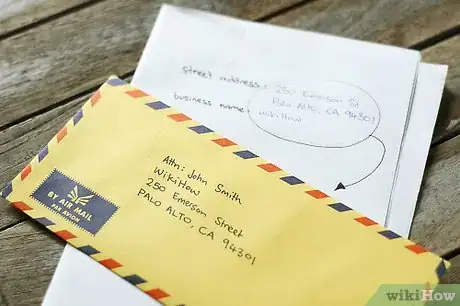 street address: 250 Emerson St
Palo Alto, CA 94301
business name: wikiHow
Attn: John Smith
WikiHow
250 Emerson Street
PALO ALTO, CA 94301
BY AIR MAIL
PAR AVION
wikiHow